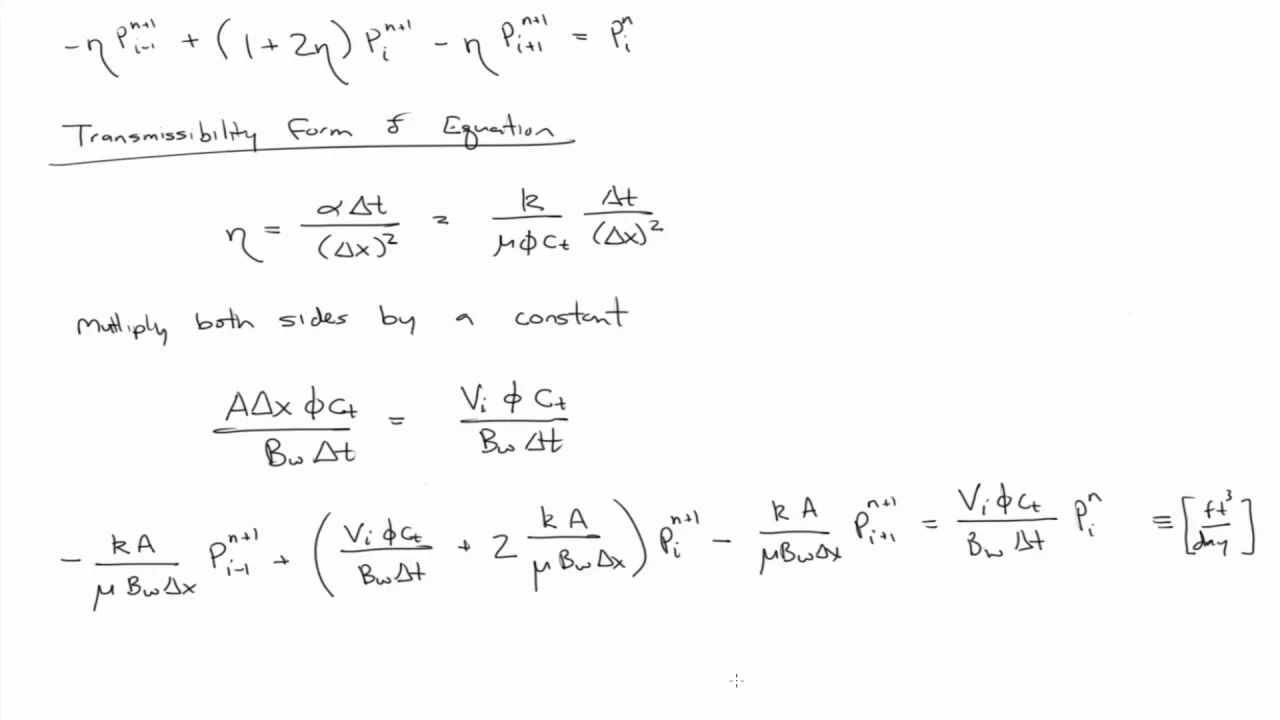 -η P_{i-1}^{n+1} + (1 + 2η) P_i^{n+1} - η P_{i+1}^{n+1} = P_i^n
Transmissibility Form of Equation
η = αΔt / (Δx)² = k / μφc_t Δt / (Δx)²
Multiply both sides by a constant
AΔx φc_t / B_w Δt = V_i φ c_t / B_w Δt
- kA / μB_wΔx P_{i-1}^{n+1} + (V_i φc_t / B_wΔt + 2 kA / μB_wΔx) P_i^{n+1} - kA / μB_wΔx P_{i+1}^{n+1} = V_i φc_t / B_w Δt P_i^n ≡ [ft³ / day]